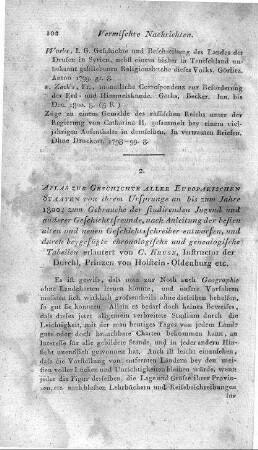 102 Vermischte Nachrichten.
Worbs, I. G. Geschichte und Beschreibung des Landes der
Drusen in Syrien, nebst einem bisher in Teutschland un-
bekannt gebliebenen Religionsbuche dieses Volks. Görlitz.
Anton 1799. gr. 8.
v. Zach's, Fr., monatliche Correspondenz zur Beförderung
der Erd- und Himmelskunde. Gotha. Becker. Jan. bis
Dec. 1800. 8. (5 R.)
Züge zu einem Gemälde des russischen Reichs unter der
Regierung von Catharina II. gesammelt bey einem viel-
jährigen Aufenthalte in demselben. In vertrauten Briefen.
Ohne Druckort. 1798-99. 8.
2.
Atlas zur Geschichte aller Europäischen
Staaten von ihrem Ursprunge an bis zum Jahre
1800; zum Gebrauche der studirenden Jugend und
anderer Geschichtsfreunde, nach Anleitung der besten
alten und neuen Geschichtschreiber entworfen, und
durch beygefügte chronologische und genealogische
Tabellen erläutert von C. Kruse, Instructor der
Durchl. Prinzen von Holstein-Oldenburg etc.
Es ist gewiss, dass man zur Noth auch Geographie
ohne Landcharten lernen könne, und unsre Vorfahren
mussten sich wirklich grossentheils ohne dieselben so
gut sie konnten behelfen. Allein es bedarf doch keines Beweises,
dass das jetzt allgemein verbreitete Studium durch die
Leichtigkeit, mit der man heutiges Tages von jedem Lande
gute oder doch brauchbare Charten bekommen kann, an
Interesse und Fortgang, so wie jeder in Stande der
Hinsicht gewonnen habe. Auch ist es nicht zu läugnen, dass
die Vorstellung von entfernten Ländern bey den mei-
sten voller Lücken und Unrichtigkeiten bleiben würde, wenn
jeder die Figur derselben, die Lage und Grösse ihrer Provin-
zen, etc. nach blossen Lehrbüchern und Reisebeschreibungen